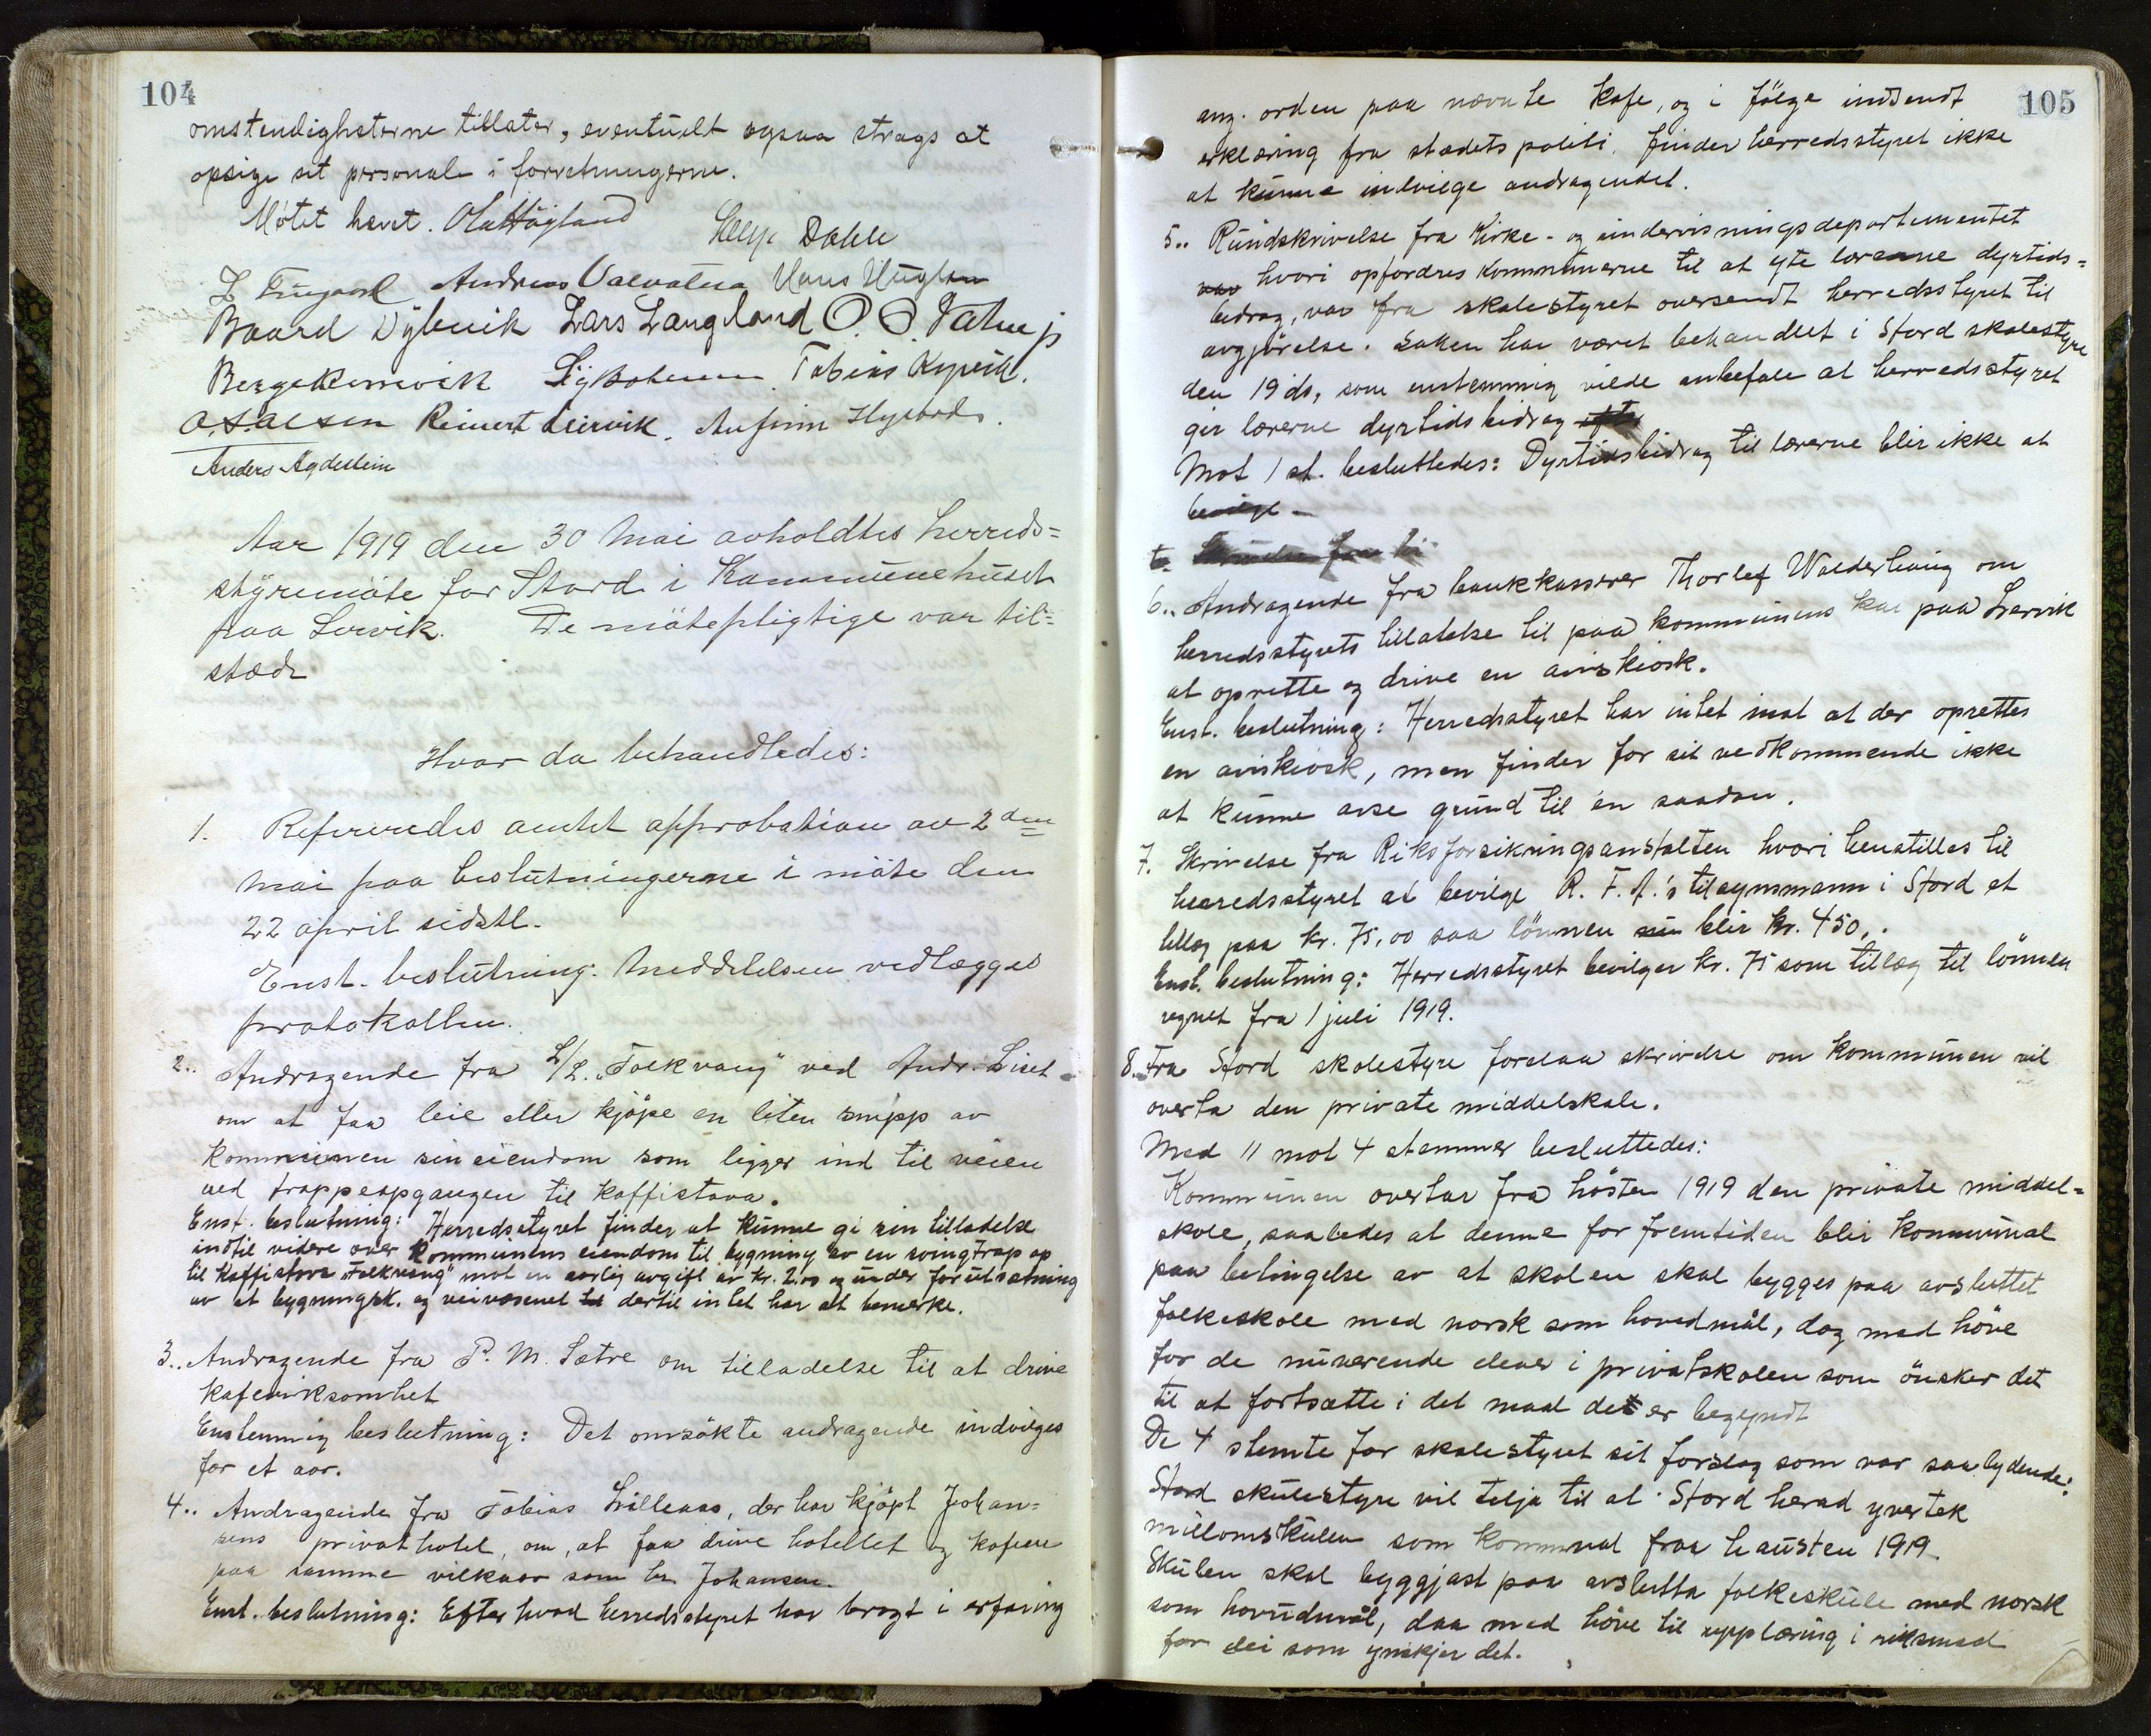 104
omstendigheterne tillater, eventuelt ogsaa strags at
opsige sit personale i forretningerne.
Møtet hævet. Ola Høgland
Helge Dahle
Andreas Valvatna Hans Huglen
Baard Dybevik Lars Langeland O. O. Tatne jr
Berge Rommetvik Tobias Kyvik.
O. S. Alsen Reinert Leirvik. Anfinn Hystad.
Anders Agdestein
Aar 1919 den 30 Mai avholdtes herreds=
styremøte for Stord i Kommunehuset
paa Lervik. De møtepligtige var til=
stæde
Hvor da behandledes:
1. Refereredes amtets approbation av 2den
mai paa beslutningerne i møte den
22 april sidstl.
Enst. beslutning: Meddelelsen vedlægges
protokollen.
2.. Andragende fra L/L. "Folkvang" ved Andr. Liset
om at faa leie eller kjøpe en liten snipp av
kommunen sin eiendom som ligger ind til veien
ved trappeopgangen til kaffistova.
Enst. beslutning: Herredsstyret finder at kunne gi sin tilladelse
indtil videre over kommunens eiendom til bygning av en svingtrap op
til Kaffistova "Folkvang" mot en aarlig avgift av kr. 2.00 og under forutsætning
av at bygningsk. og veivæsenet dertil intet har at bemerke.
3.. Andragende fra P. M. Sætre om tilladelse til at drive
kafevirksomhet
Enstemmig beslutning: Det omsøkte andragende indvilges
for et aar.
4.. Andragende fra Tobias Lilleaas, der har kjøpt Johan=
sens privathotel, om, at faa drive hotellet og kafeen
paa samme vilkaar som hr. Johansen.
Enst. beslutning: Efter hvad herredsstyret har bragt i erfaring
105
ang. orden paa nævnte kafe, og i følge indsendt
erklæring fra stædets politi, finder herredsstyret ikke
at kunne indvilge andragendet.
5.. Rundskrivelse fra Kirke- og undervisningsdepartementet
hvori opfordres kommunerne til at yte lærerne dyrtids=
bidrag, var fra skolestyret oversendt herredsstyret til
avgjørelse. Saken har været behandlet i Stord skolestyre
den 19 ds, som enstemmig vilde anbefale at herredsstyret
gir lærerne dyrtidsbidrag
Mot 1 st. besluttedes: Dyrtidsbidrag til lærerne blir ikke at
bevilge -
6.. Andragende fra bankkasserer Thorlef Walderhaug om
herredsstyrets tillatelse til paa kommunens kai paa Lervik
at oprette og drive en aviskiosk.
Enst. beslutning: Herredsstyret har intet imot at der oprettes
en aviskiosk, men finder for sit vedkommende ikke
at kunne avse grund til en saadan.
7. Skrivelse fra Riksforsikringsanstalten hvori henstilles til
herredsstyret at bevilge R. F. A.'s tilsynsmann i Stord et
tillæg paa kr. 75,00 saa lønnen blir kr. 450,.
Enst. beslutning: Herredsstyret bevilger kr. 75 som tillæg til lønnen
regnet fra 1 juli 1919.
8. Fra Stord skolestyre forelaa skrivelse om kommunen vil
overta den private middelskole.
Med 11 mot 4 stemmer besluttedes:
Kommunen overtar fra høsten 1919 den private middel=
skole, saaledes at denne for fremtiden blir kommunal
paa betingelse av at skolen skal bygges paa avsluttet
folkeskole med norsk som hovedmål, dog med høve
for de nuværende elever i privatskolen som ønsker det
til at fortsætte i det maal det er begyndt
De 4 stemte for skolestyret sit forslag som var saalydende:
Stord skulestyre vil telja til at Stord herad yvertek
millomskulen som kommunal fraa hausten 1919.
Skulen skal byggjast paa avslutta folkeskule med norsk
som hovudmål, daa med høve til upplæring i riksmaal
for dei som ynskjer det.